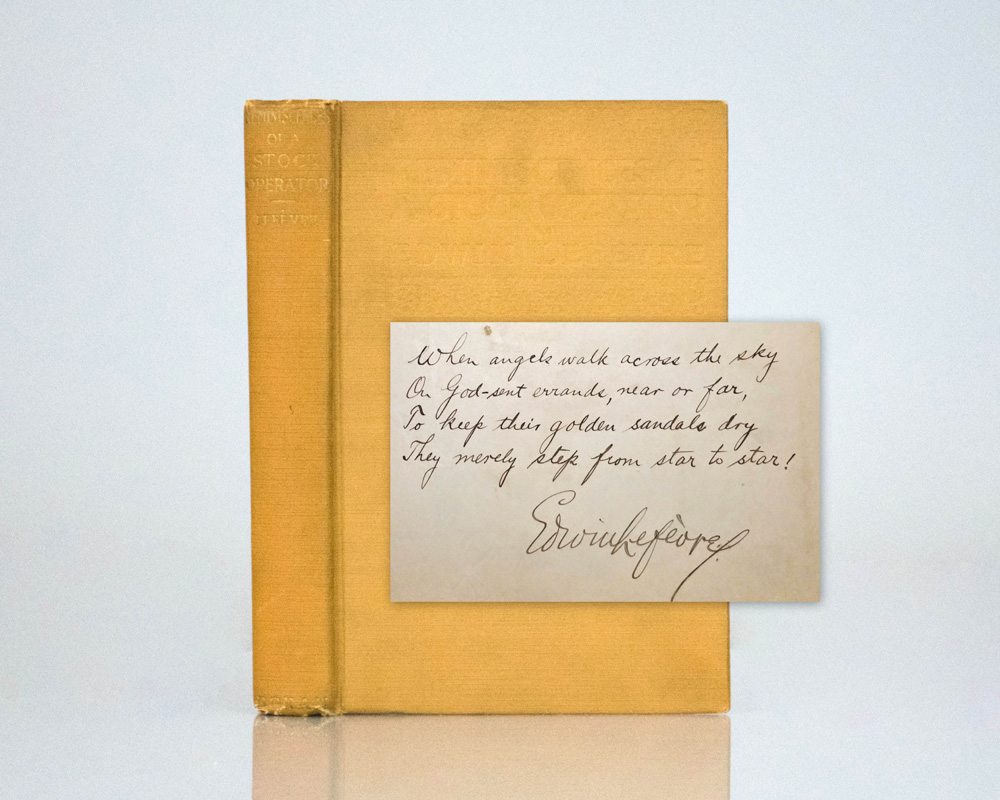 REMINISCENCES
OF A
STOCK
OPERATOR
LEFÈVRE
DORAN
REMINISCENCES OF
A STOCK OPERATOR
EDWIN LEFEVRE
When angels walk across the sky
On God-sent errands, near or far,
To keep their golden sandals dry
They merely step from star to star!
Edwin Lefèvre.